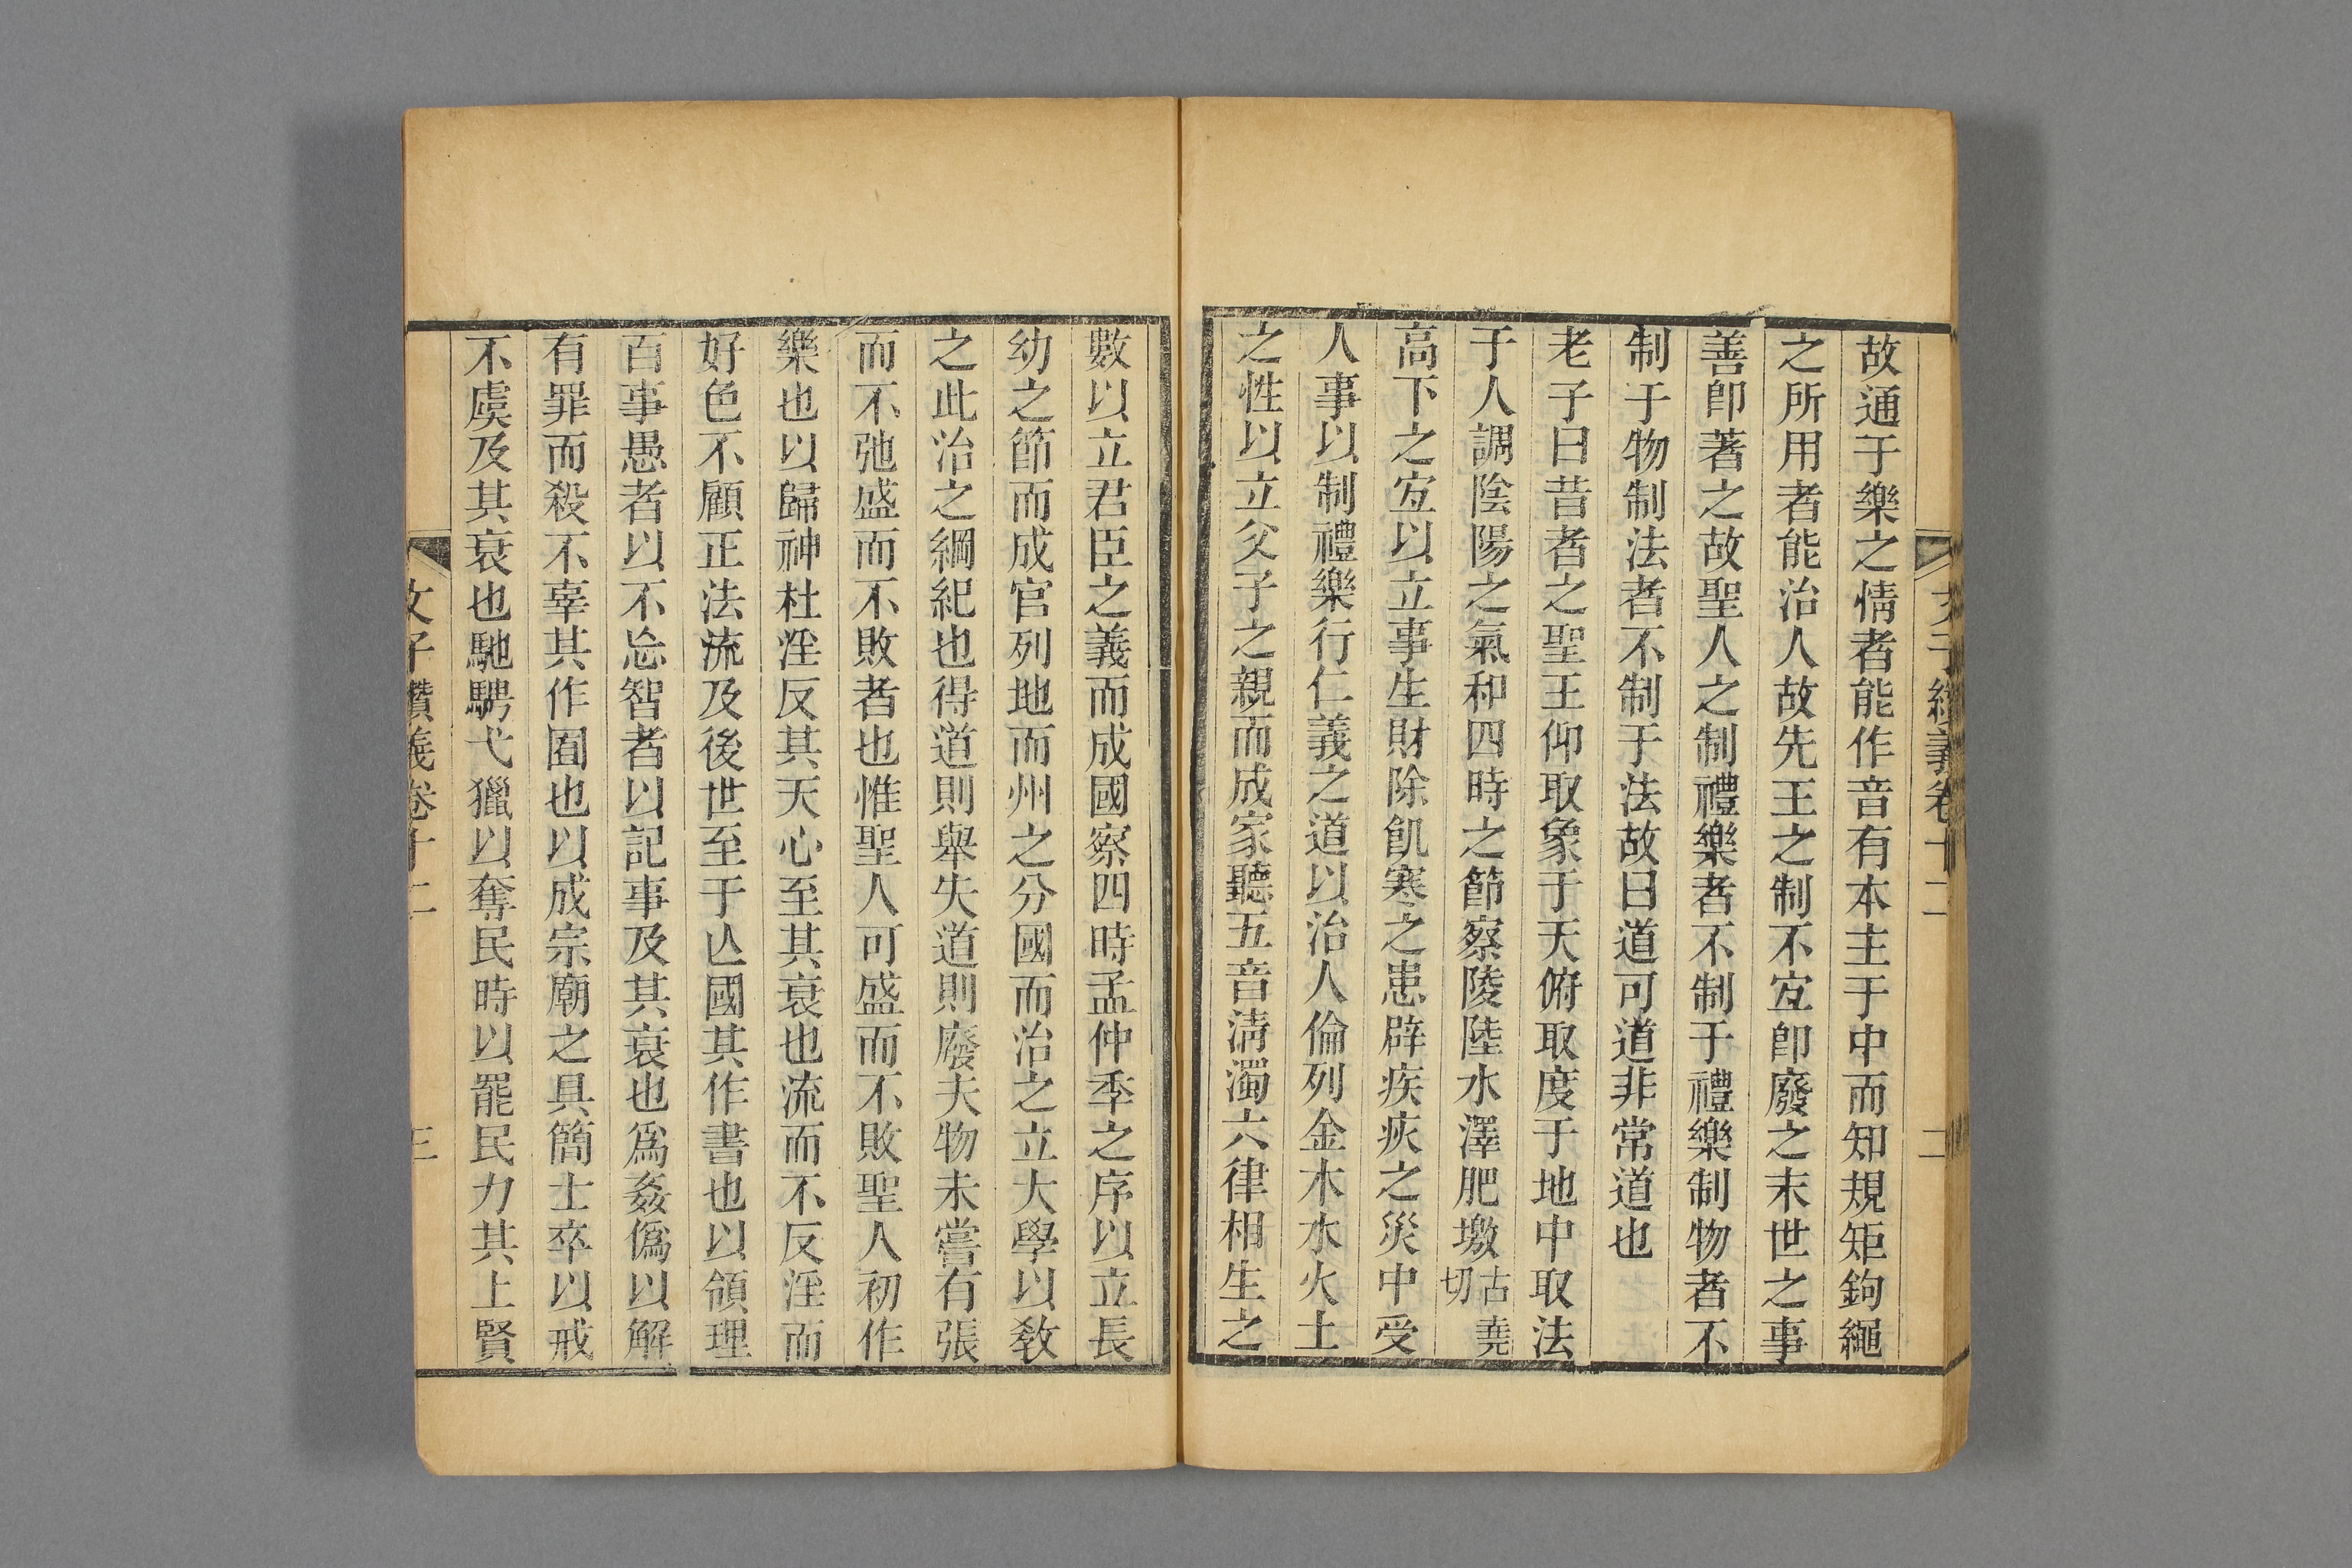 文子纘義卷十二 二
故通于樂之情者能作音有本主于中而知規矩鉤繩
之所用者能治人故先王之制不宐卽廢之末世之事
善卽著之故聖人之制禮樂者不制于禮樂制物者不
制于物制法者不制于法故曰道可道非常道也
老子曰昔者之聖王仰取象于天俯取度于地中取法
于人調陰陽之氣和四時之節察陵陸水澤肥墩古堯切
高下之宐以立事生財除飢寒之患辟疾疢之災中受
人事以制禮樂行仁義之道以治人倫列金木水火土
之性以立父子之親而成家聽五音淸濁六律相生之
數以立君臣之義而成國察四時孟仲季之序以立長
幼之節而成官列地而州之分國而治之立大學以敎
之此治之綱紀也得道則舉失道則廢夫物未嘗有張
而不弛盛而不敗者也惟聖人可盛而不敗聖人初作
樂也以歸神杜淫反其天心至其衰也流而不反淫而
好色不顧正法流及後世至于亾國其作書也以領理
百事愚者以不忘智者以記事及其衰也爲姦僞以解
有罪而殺不辜其作囿也以成宗廟之具簡士卒以戒
不虞及其衰也馳騁弋獵以奪民時以罷民力其上賢
文子纘義卷十二 三